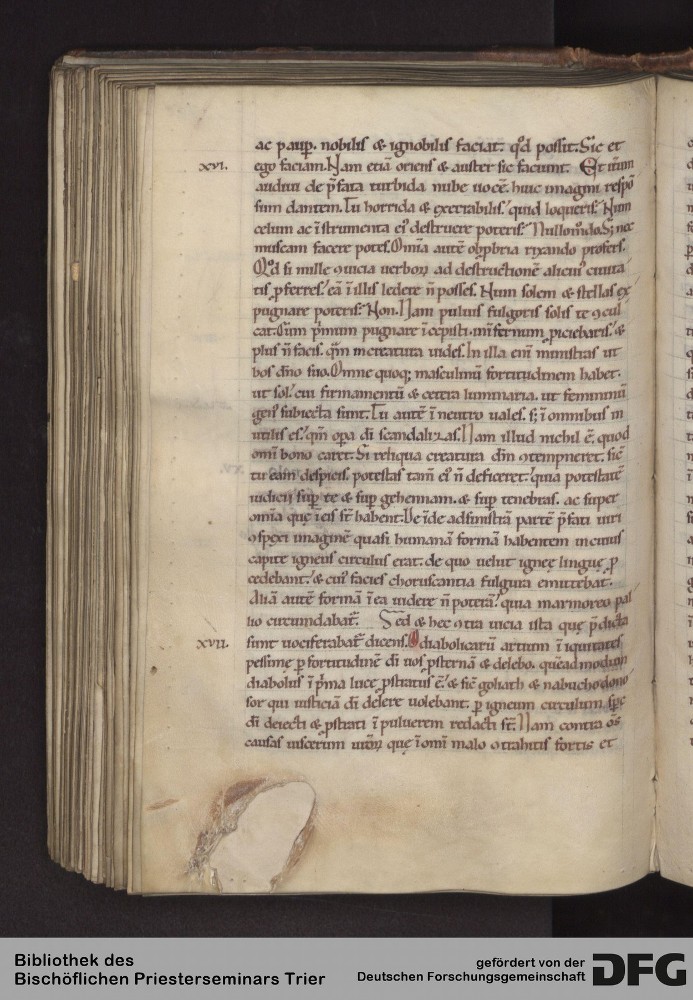 ac paup. nobilis & ignobilis faciat. qd possit. Sic et
xvi.
ego faciam. Nam etiā oriens & auster sic faciunt. Et itm
audivi de p̄fata turbida nube uocē. huic imagini respō
sum dantem. Tu horrida & execrabilis. quid loqueris? Num
celum ac īstrumenta ei' destruere poteris? Nullomodo. S; nec
muscam facere potes. Omia autē obpbria rixando profers.
Qd si mille ꝯuicia uerboꝝ ad destructionē alicui' ciuita
tis pferres. eā ī illis ledere n̄ posses. Num solem & stellas ex
pugnare poteris? Non. Nam puluis fulgoris solis te ꝯcul
cat. Cum pͥmum pugnare īcepisti. inī fernum piciebaris. &
plus n̄ facis. qm in creatura uides. In illa eni ministras ut
bos dn̄o suo. Omne quoq; masculinū fortitudinem habet.
ut sol. cui firmamentū & cetera luminaria. ut femininū
gen' subiecta sunt. Tu autē ī neutro uales. s; ī omnibus in
utilis es. qm opa di scandalizas. Nam illud nichil ē. quod
omi bono caret. Si reliqua creatura dm ꝯtempneret. sic
tu eam despicis. potestas tam ei' n̄ deficeret. quia potestatē
iudicii sup te & sup gehennam. & sup tenebras. ac super
omia que ī eis st habent. De īde ad sinistrā partē p̄fati uiri
ꝯspexi imaginē quasi humanā formā habentem in cuius
capite igneus circulus erat. de quo uelut ignee lingue p
cedebant. & cui' facies choruscantia fulgura emittebat.
Aliā autē formā ī ea uidere n̄ poterā. quia marmoreo pal
lio circumdabat. Sed & hec ꝯtra uicia ista que p̄dicta
xvii.
sunt uociferabat dicens. O diabolicarū artium ī iquitates
pessime p fortitudinē di uos psternā & delebo. quēadmodum
diabolus ī pͥma luce pstratus ē. & sic goliath & nabuchodono
sor qui iusticiā di delere uolebant. p igneum circulum spe
di deiecti & pstrati ī puluerem redacti st. Nam contra os
causas uiscerum que ī omi malo ꝯtrahitis fortis et
Bibliothek des
Bischöflichen Priesterseminars Trier
gefördert von der
Deutschen Forschungsgemeinschaft
DFG